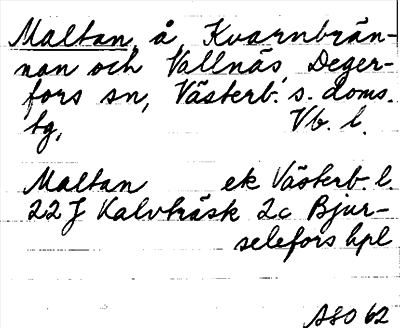 Maltan, å Kvarnbrän-
nan och Vallnäs, Deger-
fors sn, Västerb. s. doms.
tg, Vb. l.
Maltan ek Västerb l
22J Kalvträsk 2c Bjur-
selefors hpl
ASO 62